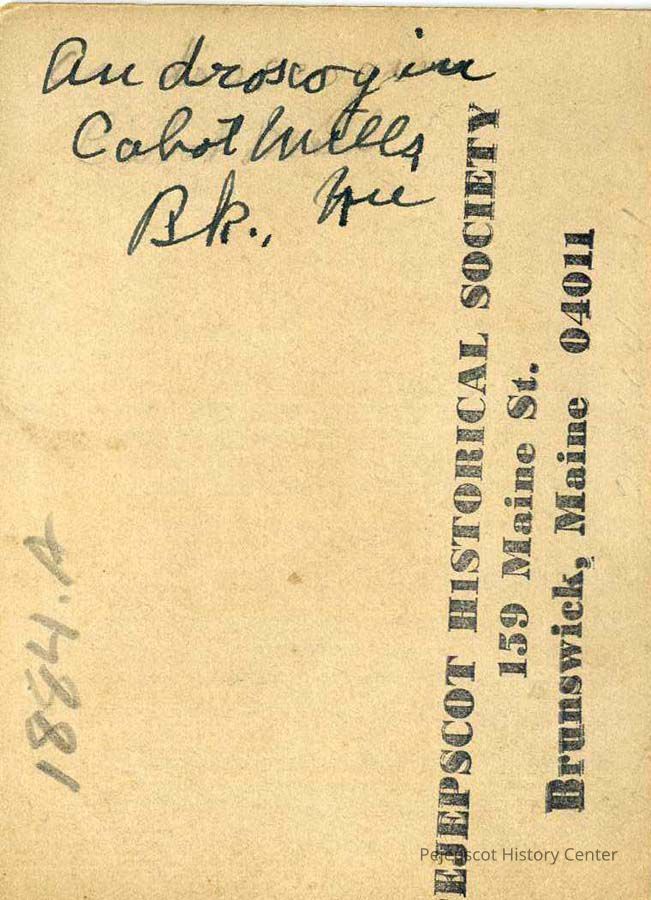 Androscogin
Cabot Mills
Bk., Me
EJEPSCOT HISTORICAL SOCIETY
159 Maine St.
Brunswick, Maine 04011
1884.A
Pejepscot History Center